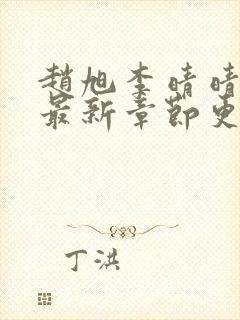 趙旭李晴晴
最新章節更
丁洪